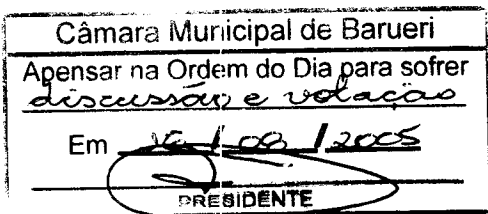 Câmara Municipal de Barueri
Apensar na Ordem do Dia para sofrer
discussão e votação
Em / 08 / 2005
PRESIDENTE